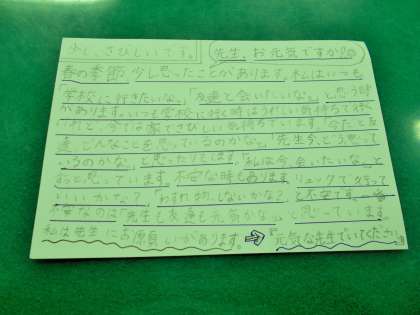 少し、さびしいです。
先生、お元気ですか?
春の季節、少し思ったことがあります。私はいつも
「学校に行きたいな。」「友達と会いたいな。」と思う時
があります。いつも学校に行く時はうれしい気持ちで行く
けれど、今では家でさびしい気持ちでいます。「今ごろ友
達、どんなことを思っているのかな。」「先生今、どう思って
いるのかな。」と思ったりします。「私は今、会いたいな。」と
ずっと思っています。不安な時もあります。リュックで行って
いいかな?「わすれ物しないかな?」と不安です。一番
不安なのは「先生も友達も元気かな。」と思っています。
私は先生にお願いがあります。⇒『元気な先生でいてください。』